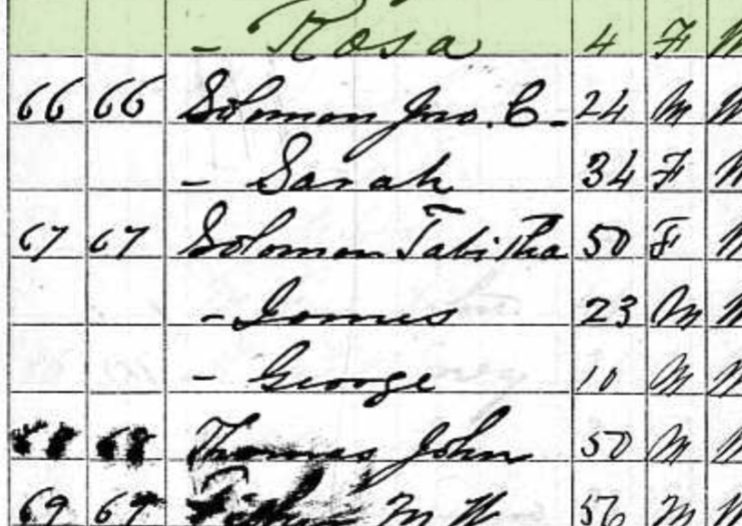 - Rosa 4 F W
66 66 Solomon Jno. C- 24 M W
- Sarah 34 F W
67 67 Solomon Tabitha 50 F W
- James 23 M W
- George 10 M W
68 68 Thomas John 50 M W
69 69 M W 56 M W